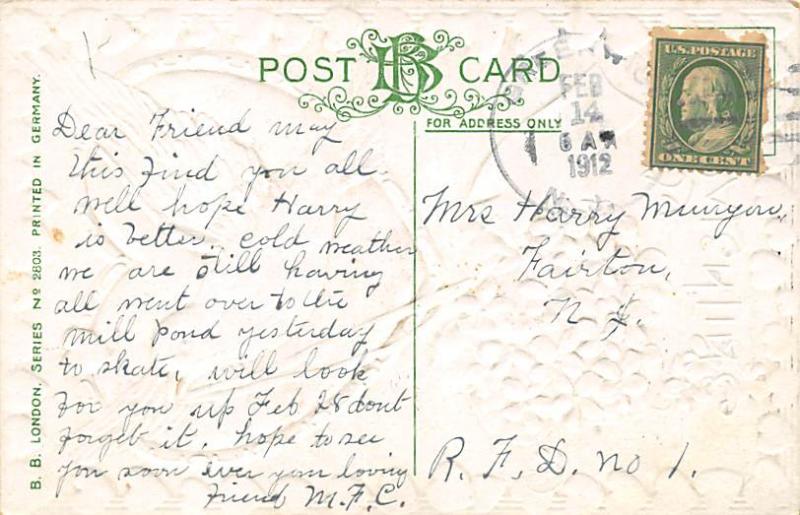 POST BB CARD
FOR ADDRESS ONLY
FEB
14
6 AM
1912
U.S. POSTAGE
ONE CENT
B. B. LONDON. SERIES No 2803. PRINTED IN GERMANY.
Dear Friend may
this find you all
well hope Harry
is better. cold weather
we are still having
all went over to the
mill pond yesterday
to skate, will look
for you up Feb 28 dont
forget it. hope to see
you soon ever your loving
Friend M.F.C.
Mrs Harry
Fairton,
N J.
R. F. D. no 1.